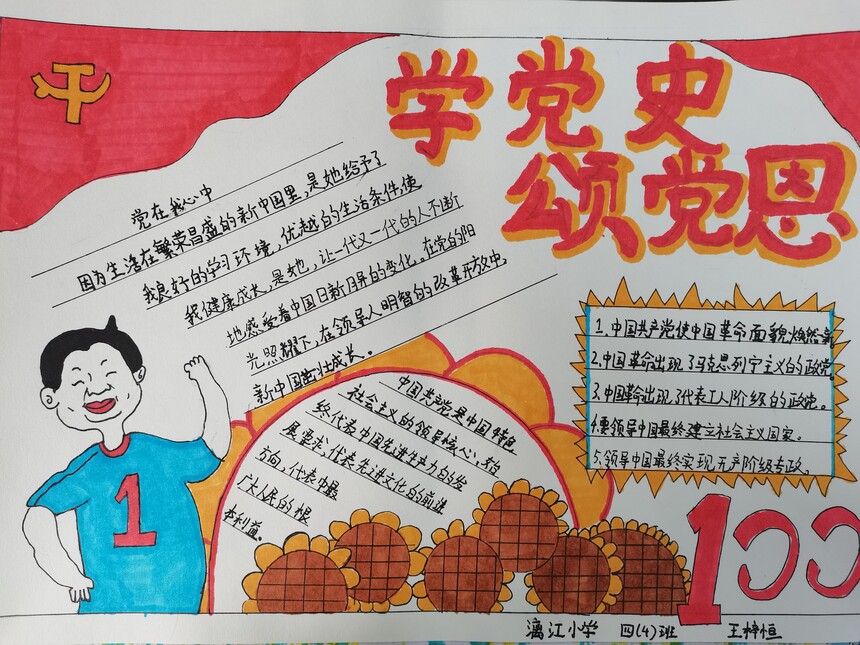 学党史
颂党恩
党在我心中
因为生活在繁荣昌盛的新中国里,是她给予了
我良好的学习环境,优越的的生活条件,使
我健康成长,是她,让一代又一代的人不断
地感受着中国日新月异的变化。在党的阳
光照耀下,在领导人明智的改革开放中,
新中国茁壮成长。
中国共产党是中国特色
社会主义的领导核心,始
终代表中国先进生产力的发
展要求,代表先进文化的前进
方向,代表中最
广大人民的根
本利益。
1.中国共产党使中国革命面貌焕然一新
2.中国革命出现了马克思列宁主义的的政党。
3.中国革命出现了代表工人阶级的的政党。
4.要领导中国最终建立社会主义国家。
5.领导中国最终实现无产阶级专政。
1
100
漓江小学 四(4)班 王梓恒